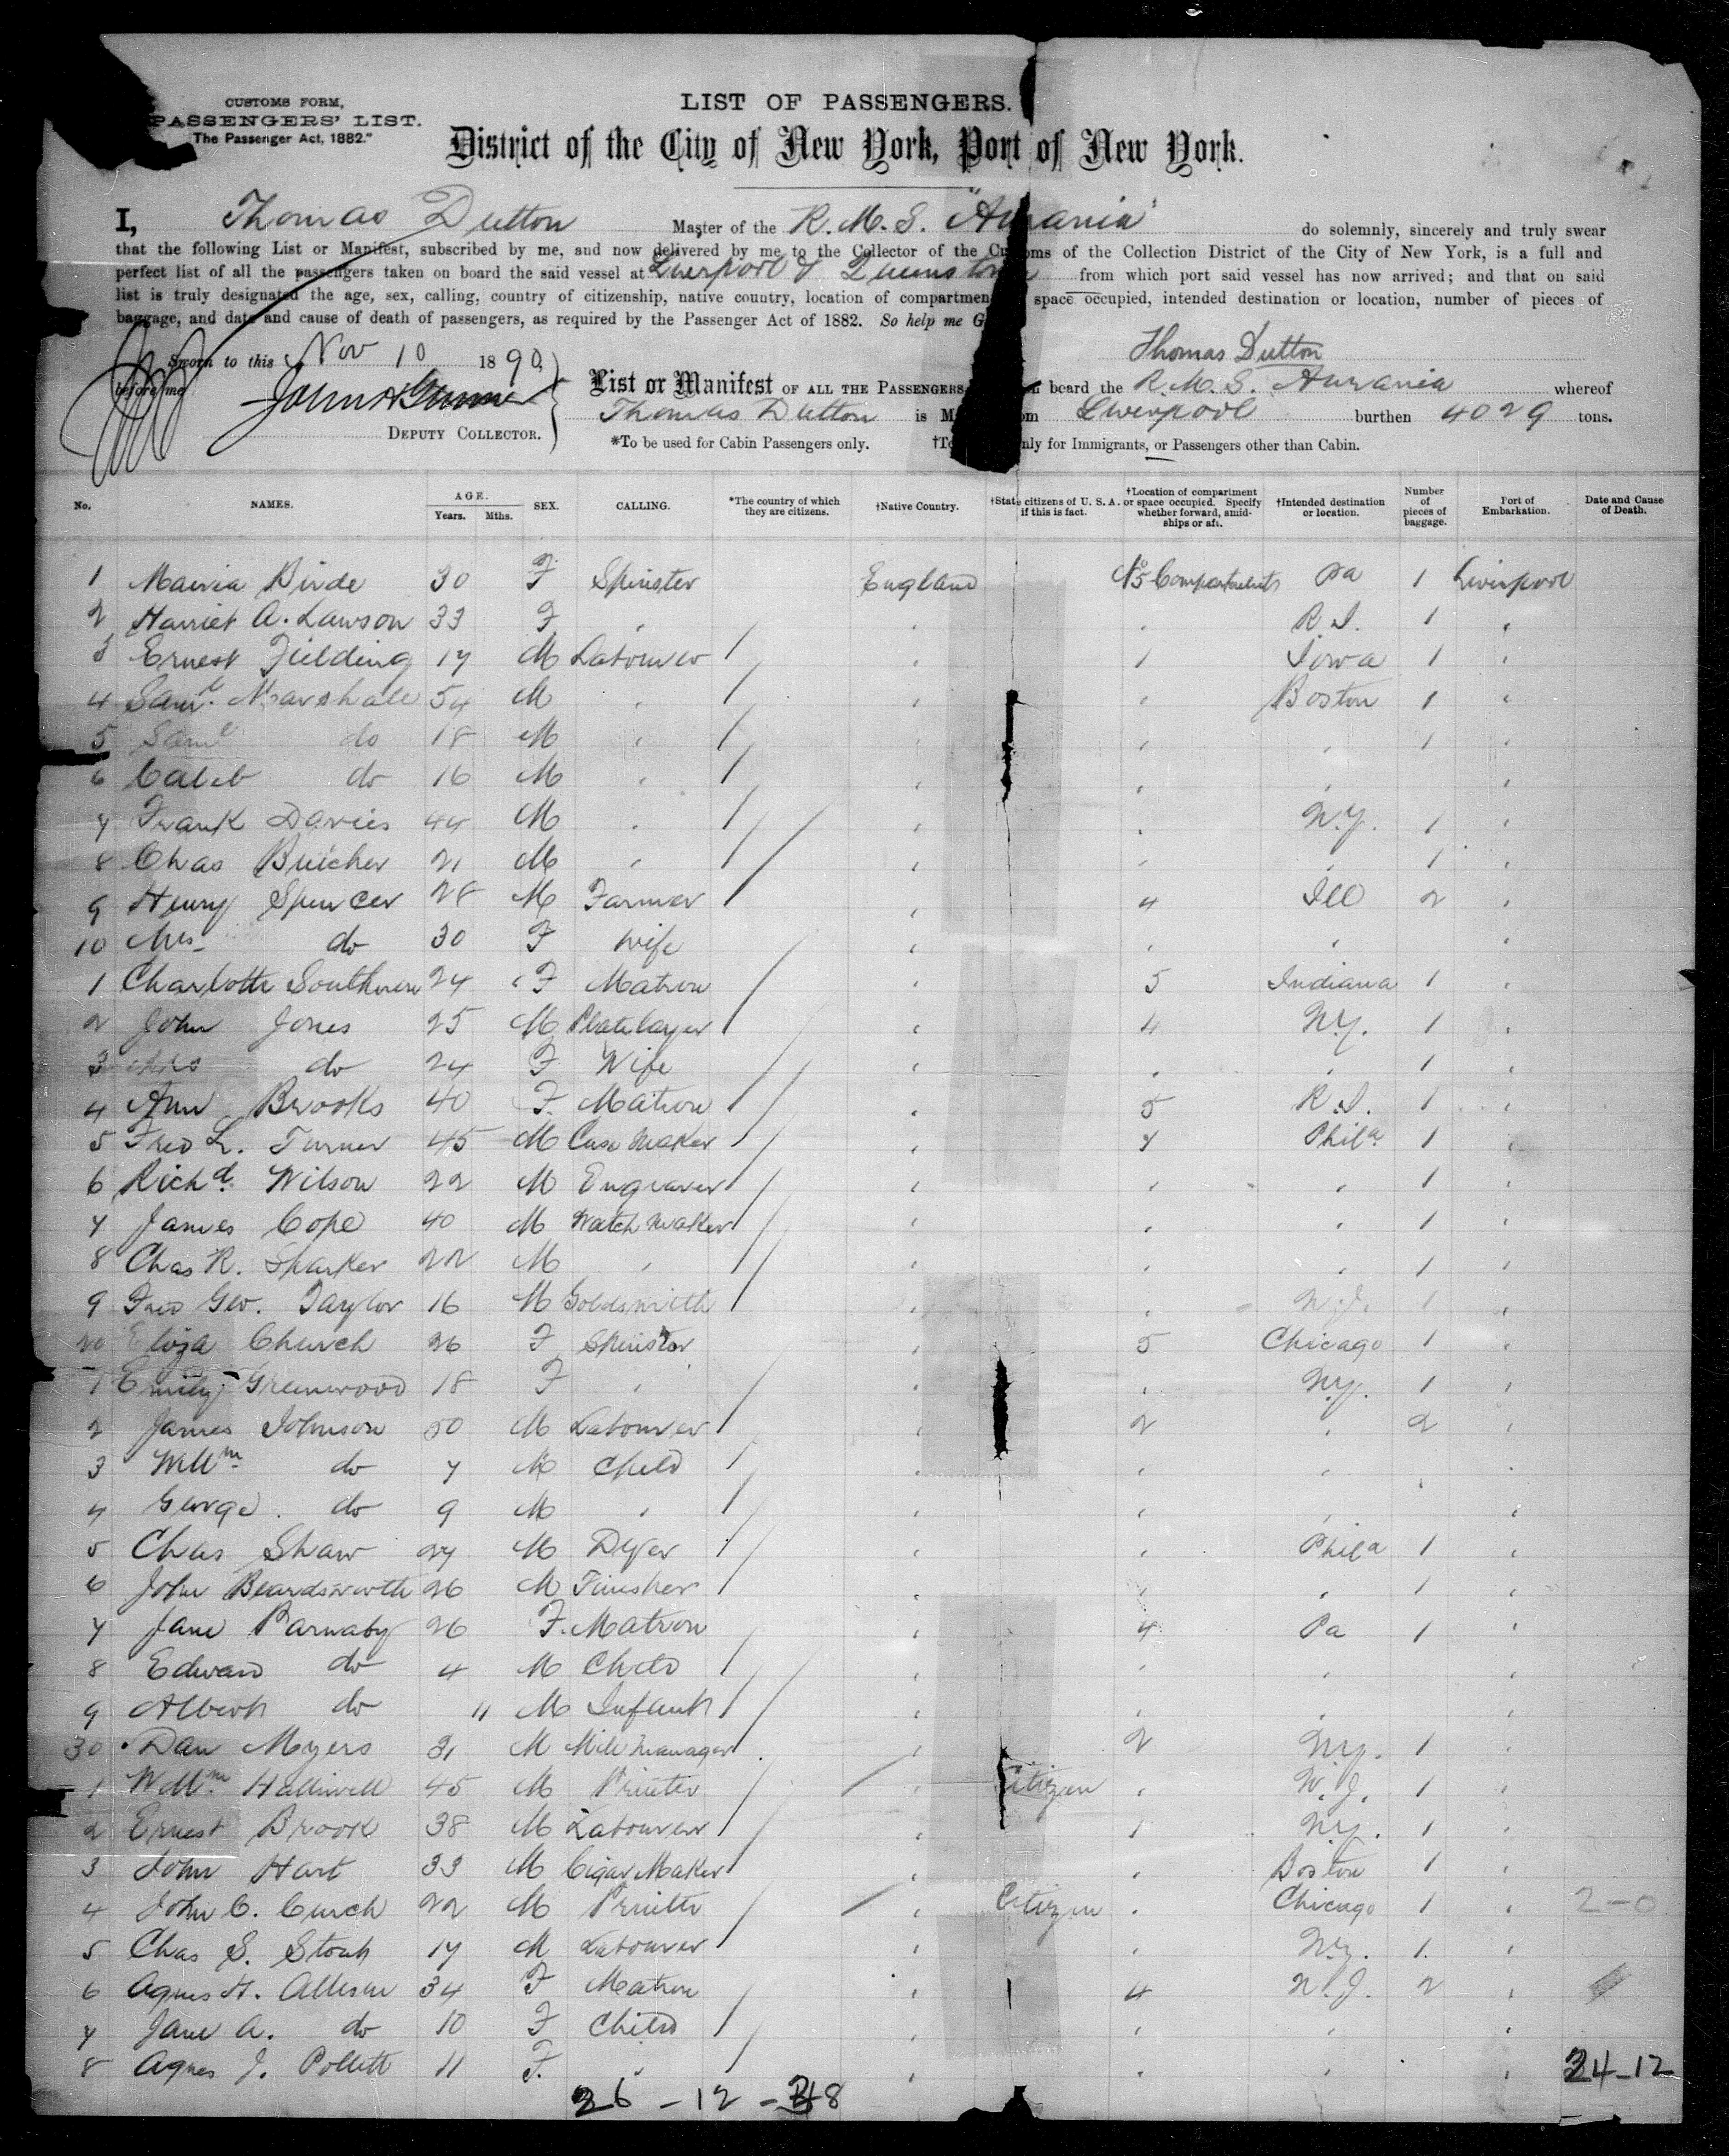 CUSTOMS FORM,
PASSENGERS' LIST.
The Passenger Act, 1882."
LIST OF PASSENGERS.
District of the City of New York, Port of New York.
I, Thomas Dutton Master of the R. M. S. "Aurania" do solemnly, sincerely and truly swear
that the following List or Manifest, subscribed by me, and now delivered by me to the Collector of the Customs of the Collection District of the City of New York, is a full and
perfect list of all the passengers taken on board the said vessel at Liverpool & Queenstown from which port said vessel has now arrived; and that on said
list is truly designated the age, sex, calling, country of citizenship, native country, location of compartment space occupied, intended destination or location, number of pieces of
baggage, and date and cause of death of passengers, as required by the Passenger Act of 1882. So help me G
Thomas Dutton
Sworn to this Nov 10 1890
before me
DEPUTY COLLECTOR.
List or Manifest OF ALL THE PASSENGERS board the R. M. S. Aurania whereof
Thomas Dutton is M Liverpool burthen 4029 tons.
*To be used for Cabin Passengers only. only for Immigrants, or Passengers other than Cabin.
No. NAMES. AGE. Years. Mths. SEX. CALLING. *The country of which they are citizens. †Native Country. †State citizens of U. S. A. if this is fact. †Location of compartment or space occupied. Specify whether forward, amidships or aft. †Intended destination or location. Number of pieces of baggage. Port of Embarkation. Date and Cause of Death.
1 30 F Spinster England No 5 Compartments Pa 1 Liverpool
2 Harriet A. Lawson 33 F " " " R I. 1 "
3 Ernest Fielding 17 M Labourer " 1 Iowa 1 "
4 Saml. Marshall 54 M " " " Boston 1 "
5 Saml do 18 M " " " " 1 "
6 Caleb do 16 M " " " " "
7 Frank Davies 44 M " " " N.Y. 1 "
8 Chas Butcher 21 M " " " " 1 "
9 Henry Spencer 28 M Farmer " 4 Ill 2 "
10 Mrs do 30 F Wife " " " "
1 Charlotte Southern 24 F Matron " 5 Indiana 1 "
2 John Jones 25 M Platelayer " 4 N.Y. 1 "
3 Mrs do 24 F Wife " " " 1 "
4 Ann Brooks 40 F. Matron " 5 R.I. 1 "
5 Fred L. Turner 45 M Case Maker " 7 Phila. 1 "
6 Richd. Wilson 22 M Engraver " " " 1 "
7 James Cope 40 M Watch Maker " " " 1 "
8 Chas R. Sharker 22 M " " " " 1 "
9 Fred Geo. Taylor 16 M Goldsmith " " N.J. 1 "
20 Eliza Church 26 F Spinster " 5 Chicago 1 "
1 Emily Greenwood 18 F " " " N.Y. 1 "
2 James Johnson 50 M Labourer " 2 " 2 "
3 Willm. do 7 M Child " " " "
4 George do 9 M " " " " "
5 Chas Shaw 27 M Dyer " " Phila 1 "
6 John Beardsworth 26 M Finisher " " " 1 "
7 Jane Barnaby 26 F. Matron " 4 Pa 1 "
8 Edward do 4 M Child " " " "
9 Albert do 11 M Infant " " " "
30 Dan Myers 31 M Mill Manager " 2 N.Y. 1 "
1 Willm. Halliwell 45 M Printer " Citizen " N.J. 1 "
2 Ernest Brook 38 M Labourer " 1 N.Y. 1 "
3 John Hart 33 M Cigar Maker " " Boston 1 "
4 John C. 22 M Printer " Citizen " Chicago 1 " 2-0
5 Chas S. Stott 17 M Labourer " " N.Y. 1 "
6 Agnes H. Allison 34 F Matron " 4 N.J. 2 "
7 Jane A. do 10 F Child " " " "
8 Agnes J. Pollitt 11 F. " " " " "
24-12
26-12-38